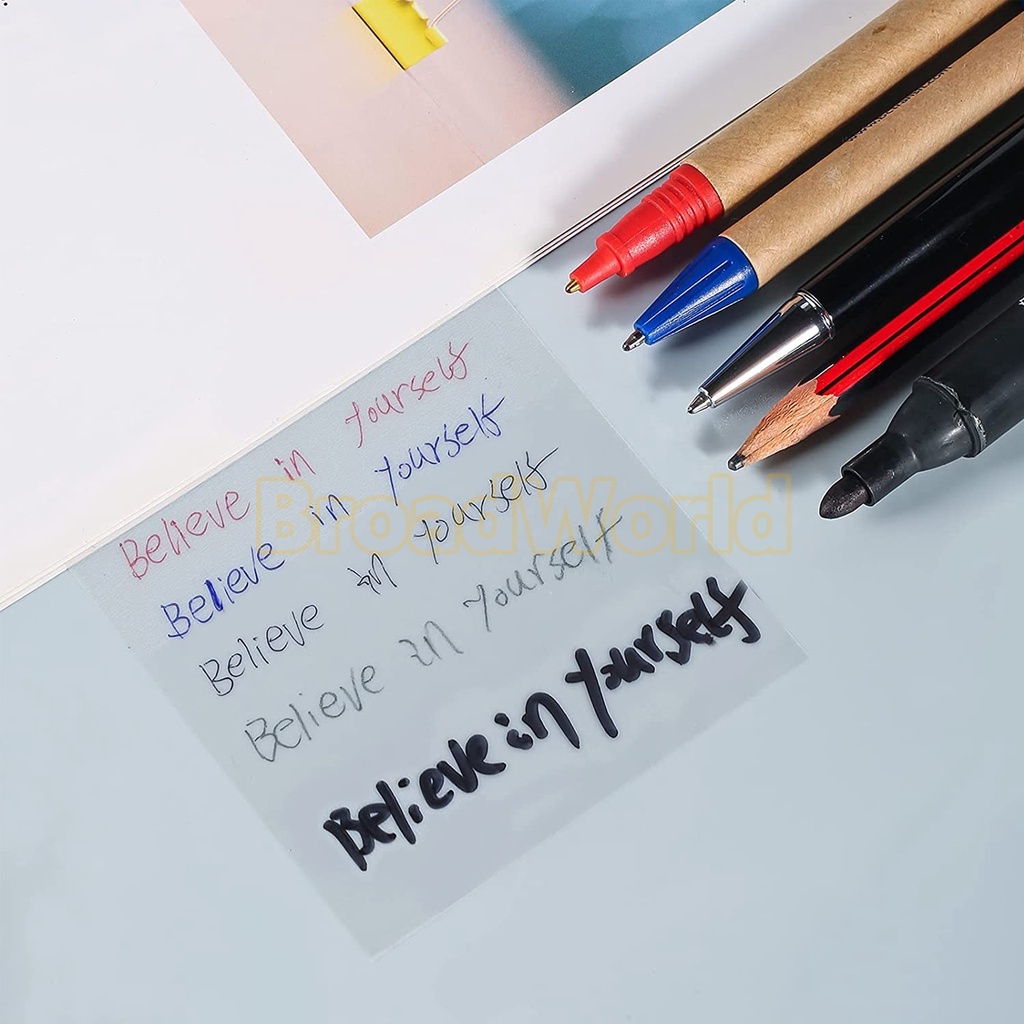 Believe in yourself
Believe in yourself
BroadWorld
Believe in yourself
Believe in yourself
Believe in yourself